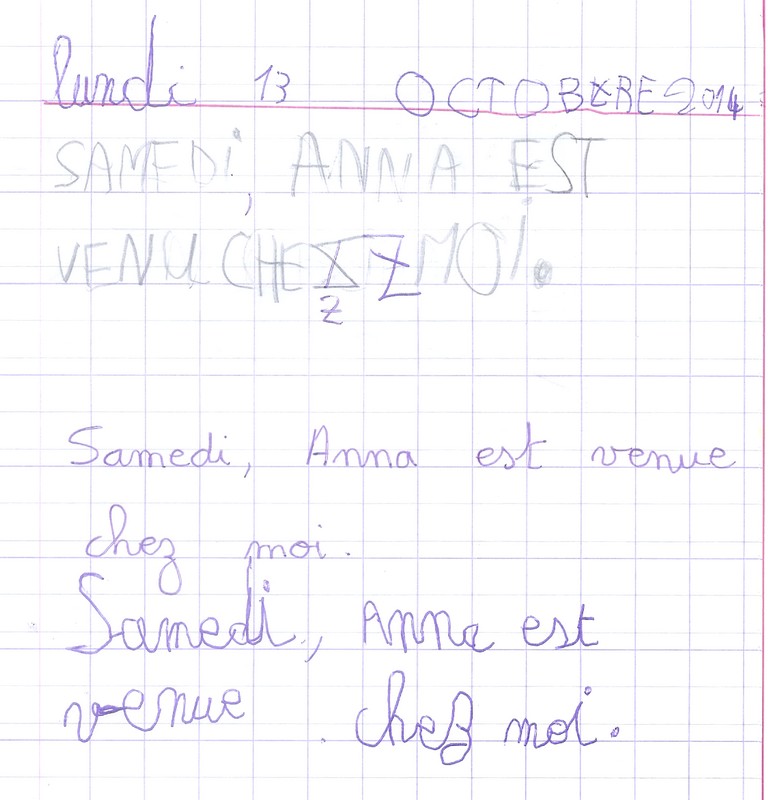 lundi 13 OCTOBRE 2014
SAMEDi, ANNA EST
VENU CHEZ MOi.
Z
Samedi, Anna est venue
chez moi.
Samedi, Anna est
venue chez moi.